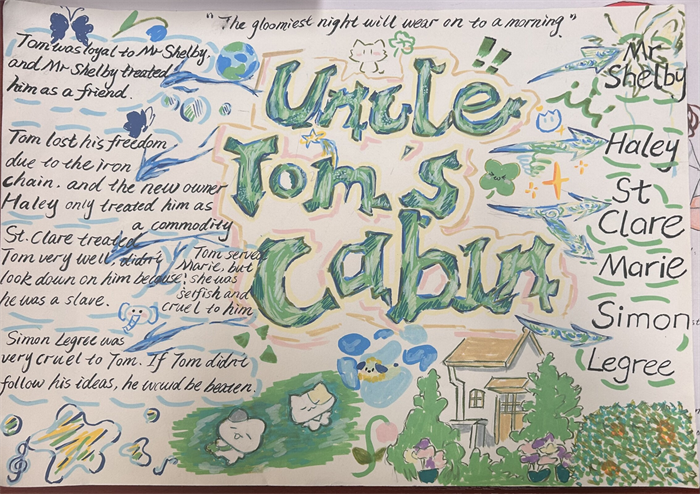 "The gloomiest night will wear on to a morning."
Uncle
Tom's
Cabin
Tom was loyal to Mr Shelby,
and Mr Shelby treated
him as a friend.
Tom lost his freedom
due to the iron
chain. and the new owner
Haley only treated him as
a commodity
St. Clare treated
Tom very well didn't
look down on him because
he was a slave.
Tom served
Marie, but
she was
selfish and
cruel to him
Simon Legree was
very cruel to Tom. If Tom didn't
follow his ideas, he would be beaten.
Mr
Shelby
Haley
St
Clare
Marie
Simon
Legree